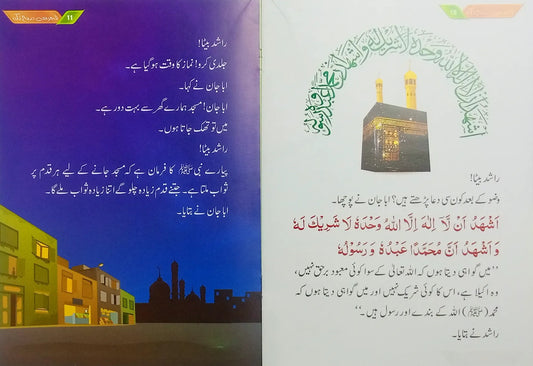 11
راشد بیٹا!
جلدی کرو! نماز کا وقت ہو گیا ہے۔
ابا جان نے کہا۔
ابا جان! مسجد ہمارے گھر سے بہت دور ہے۔
میں تو تھک جاتا ہوں۔
راشد بیٹا!
پیارے نبی ﷺ کا فرمان ہے کہ مسجد جانے کے لیے ہر قدم پر
ثواب ملتا ہے۔ جتنے قدم زیادہ چلو گے اتنا زیادہ ثواب ملے گا۔
ابا جان نے بتایا۔
10
راشد بیٹا!
وضو کے بعد کون سی دعا پڑھتے ہیں؟ ابا جان نے پوچھا۔
اَشْهَدُ اَنْ لَّا اِلٰهَ اِلَّا اللهُ وَحْدَهٗ لَا شَرِيْكَ لَهٗ
وَ اَشْهَدُ اَنَّ مُحَمَّدًا عَبْدُهٗ وَ رَسُوْلُهٗ
”میں گواہی دیتا ہوں کہ اللہ تعالیٰ کے سوا کوئی معبود برحق نہیں،
وہ اکیلا ہے، اس کا کوئی شریک نہیں اور میں گواہی دیتا ہوں کہ
محمد (ﷺ) اللہ کے بندے اور رسول ہیں۔“
راشد نے بتایا۔